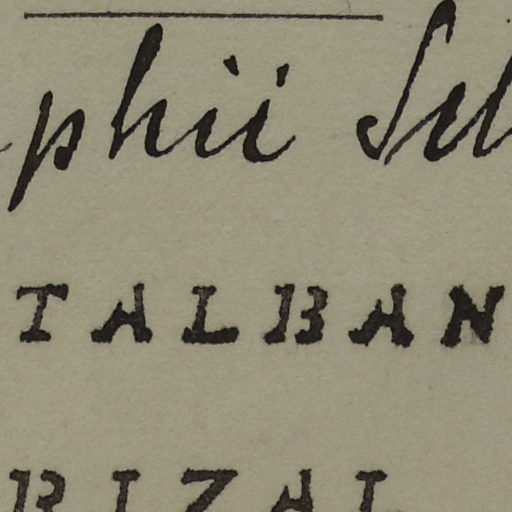 phii Sch
TALBAN
RIZAL